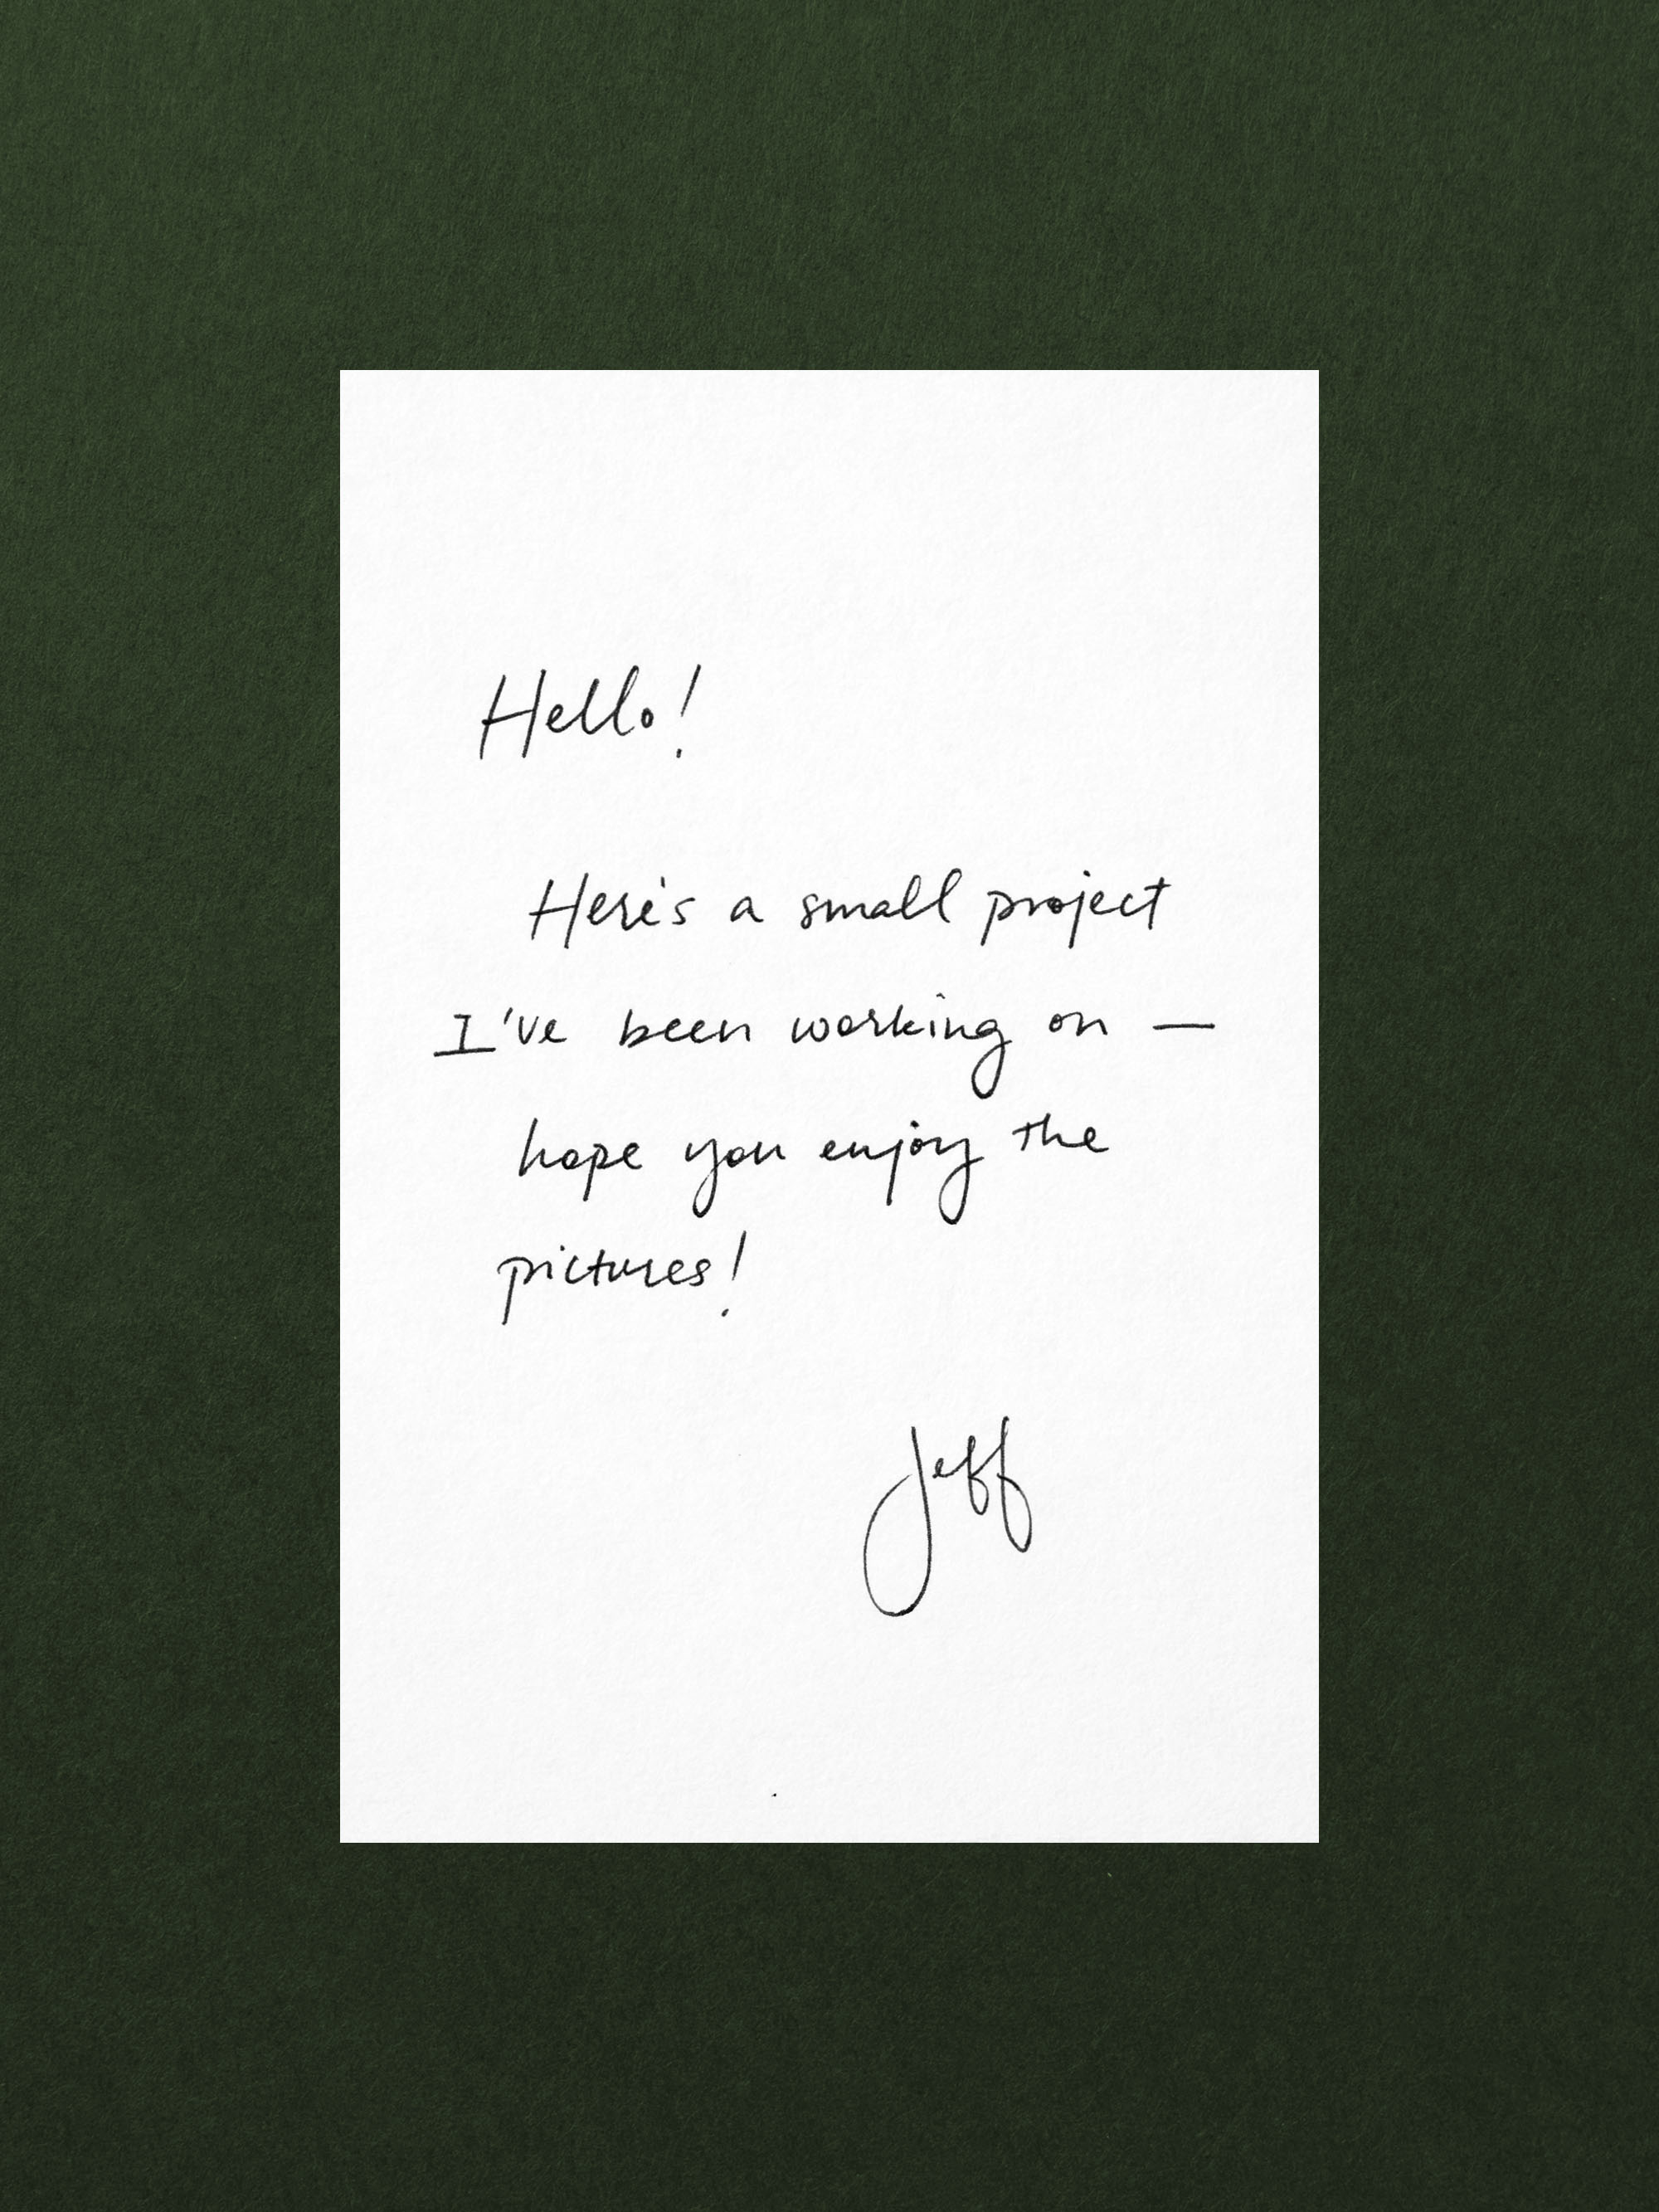 Hello!
Here's a small project
I've been working on —
hope you enjoy the
pictures!
Jeff